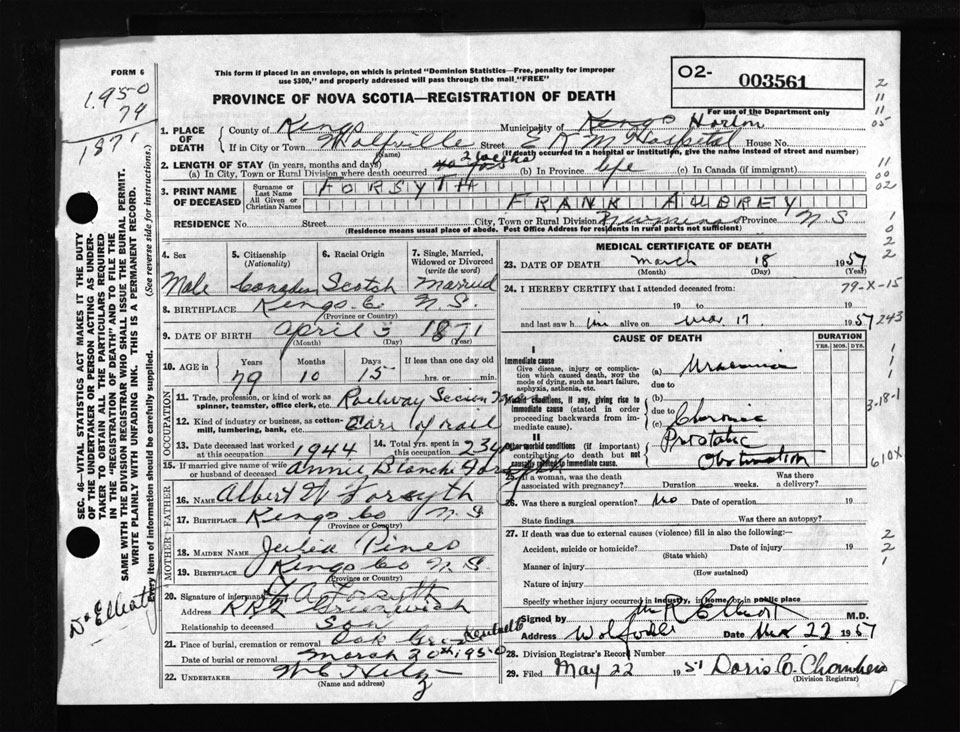 FORM 6
This form if placed in an envelope, on which is printed "Dominion Statistics—Free, penalty for improper
use $300," and properly addressed will pass through the mail "FREE"
PROVINCE OF NOVA SCOTIA—REGISTRATION OF DEATH
02- 003561
For use of the Department only
1950
79
1871
1. PLACE OF DEATH
County of Kings Municipality of Kings Horton
If in City or Town Wolfville Street E K M Hospital House No.
(Name) (If death occurred in a hospital or institution, give the name instead of street and number)
2. LENGTH OF STAY (in years, months and days) 2 weeks
(a) In City, Town or Rural Division where death occurred (b) In Province life (c) In Canada (if immigrant)
3. PRINT NAME OF DECEASED
Surname or Last Name FORSYTH
All Given or Christian Names FRANK AUBREY
RESIDENCE No. Street City, Town or Rural Division Province N. S
(Residence means usual place of abode. Post Office Address for residents in rural parts not sufficient)
4. Sex Male
5. Citizenship (Nationality) Canadian
6. Racial Origin Scotch
7. Single, Married, Widowed or Divorced (write the word) Married
8. BIRTHPLACE Kings Co N. S.
(Province or Country)
9. DATE OF BIRTH April 3 1871
(Month) (Day) (Year)
10. AGE in Years 79 Months 10 Days 15 If less than one day old hrs. or min.
OCCUPATION
11. Trade, profession, or kind of work as spinner, teamster, office clerk, etc. Railway Section
12. Kind of industry or business, as cotten-mill, lumbering, bank, etc. of rail
13. Date deceased last worked at this occupation 1944
14. Total yrs. spent in this occupation 23
15. If married give name of wife or husband of deceased Annie Blanche Forsyth
FATHER
16. NAME Albert W Forsyth
17. BIRTHPLACE Kings Co N S
(Province or Country)
MOTHER
18. MAIDEN NAME Julia Pineo
19. BIRTHPLACE Kings Co N S
(Province or Country)
20. Signature of informant F. A. Forsyth
Address RR2 Greenwich
Relationship to deceased Son
21. Place of burial, cremation or removal Oak Grove Kentville
Date of burial or removal March 20th 1950
22. UNDERTAKER W C Hiltz
(Name and address)
MEDICAL CERTIFICATE OF DEATH
23. DATE OF DEATH March 18 1951
(Month) (Day) (Year)
24. I HEREBY CERTIFY that I attended deceased from:
19 to 19
and last saw h im alive on Mar 17 1951
CAUSE OF DEATH
DURATION
YRS. MOS. DYS.
I
Immediate cause
Give disease, injury or complication which caused death, NOT the mode of dying, such as heart failure, asphyxia, asthenia, etc.
(a) Uraemia
due to
Morbid conditions, if any, giving rise to immediate cause (stated in order proceeding backwards from immediate cause).
(b)
due to Chronic
(c) Prostatic
Obstruction
II
Other morbid conditions (if important) contributing to death but not causally related to immediate cause.
25. If a woman, was the death associated with pregnancy? Duration weeks. Was there a delivery?
26. Was there a surgical operation? No Date of operation 19
State findings Was there an autopsy?
27. If death was due to external causes (violence) fill in also the following:—
Accident, suicide or homicide? Date of injury 19
(State which)
Manner of injury
(How sustained)
Nature of injury
Specify whether injury occurred in industry, in home, or in public place
Signed by Elliott M.D.
Address Wolfville Date Mar 22 1951
28. Division Registrar's Record Number
29. Filed May 22 1951 Doris C. Chambers
(Division Registrar)
SEC. 46—VITAL STATISTICS ACT MAKES IT THE DUTY
OF THE UNDERTAKER OR PERSON ACTING AS UNDER-
TAKER TO OBTAIN ALL THE PARTICULARS REQUIRED
IN THE "REGISTRATION OF DEATH" AND TO FILE THE
SAME WITH THE DIVISION REGISTRAR WHO SHALL ISSUE THE BURIAL PERMIT.
WRITE PLAINLY WITH UNFADING INK. THIS IS A PERMANENT RECORD.
Every item of information should be carefully supplied. (See reverse side for instructions.)
Dr Elliott
2
11
11
05
11
00
02
1
0
2
2
79-X-15
243
1
1
1
3.18.1
610X
2
2
1